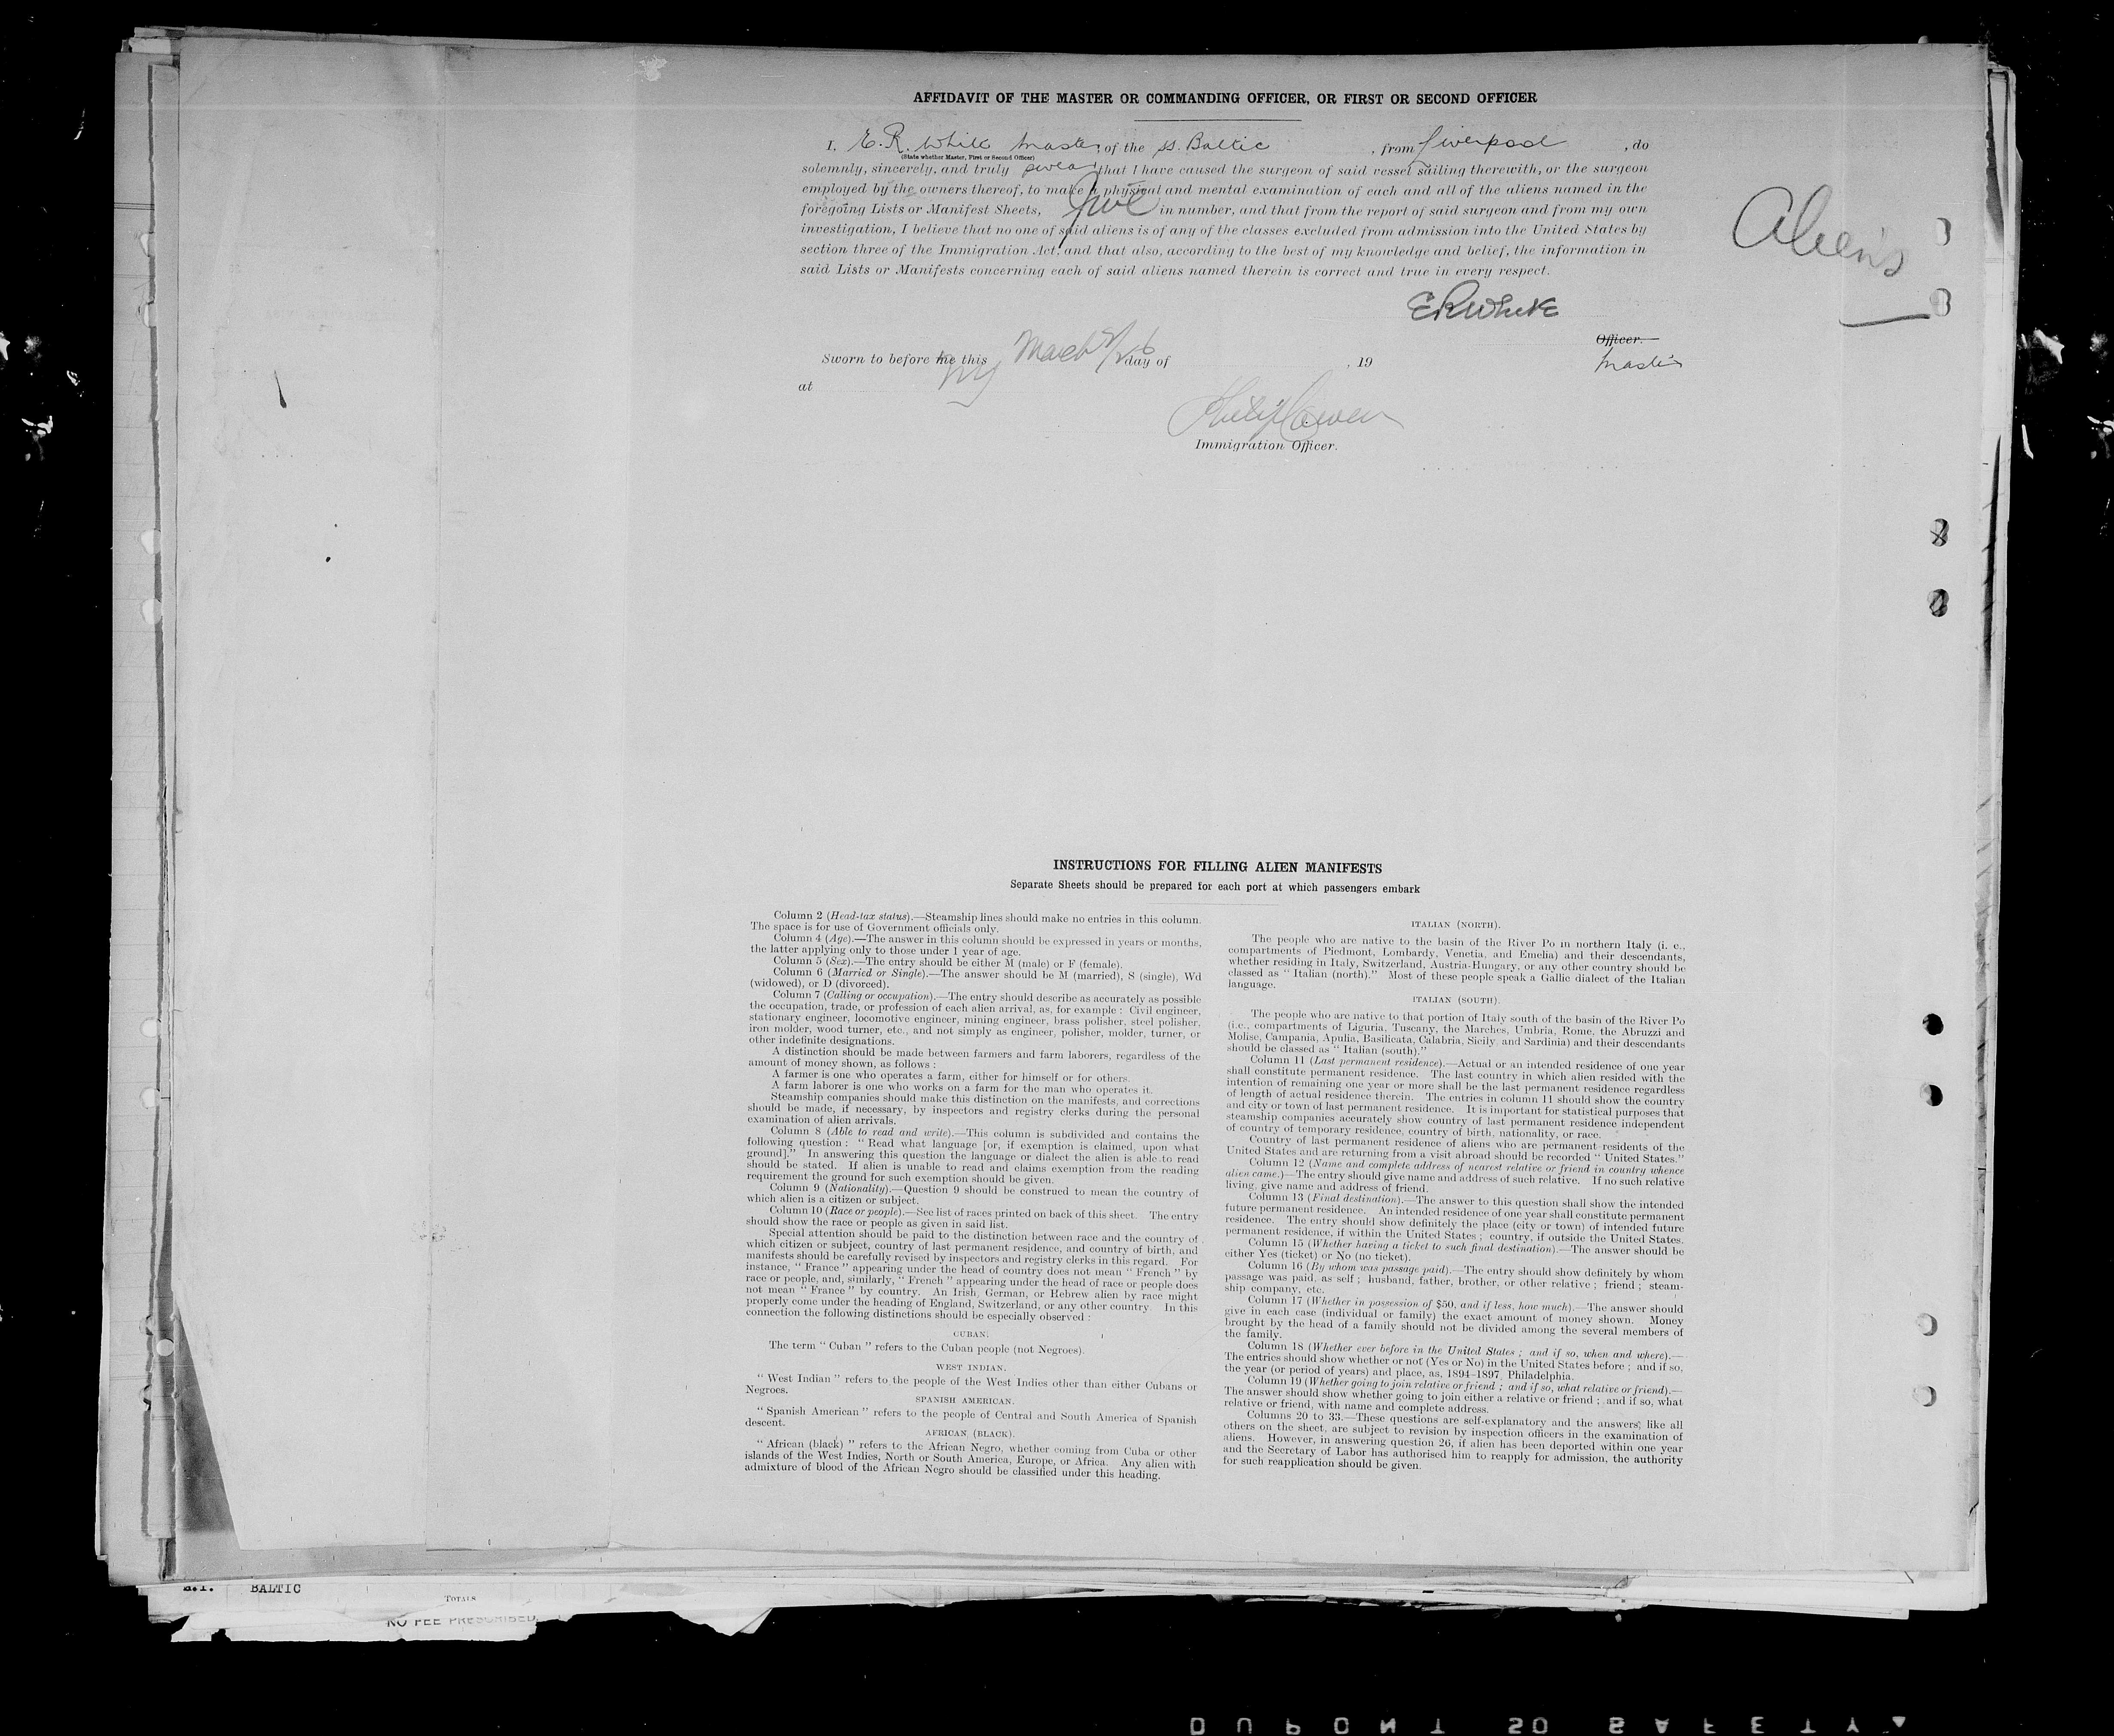 AFFIDAVIT OF THE MASTER OR COMMANDING OFFICER, OR FIRST OR SECOND OFFICER
I, E. R. White Master, of the ss. Baltic, from Liverpool, do
(State whether Master, First or Second Officer)
solemnly, sincerely, and truly swear that I have caused the surgeon of said vessel sailing therewith, or the surgeon
employed by the owners thereof, to make a physical and mental examination of each and all of the aliens named in the
foregoing Lists or Manifest Sheets, five in number, and that from the report of said surgeon and from my own
investigation, I believe that no one of said aliens is of any of the classes excluded from admission into the United States by
section three of the Immigration Act, and that also, according to the best of my knowledge and belief, the information in
said Lists or Manifests concerning each of said aliens named therein is correct and true in every respect.
Aliens
ERWhite
Officer.
Sworn to before me this March day of , 19
Master
at NY
Immigration Officer.
INSTRUCTIONS FOR FILLING ALIEN MANIFESTS
Separate Sheets should be prepared for each port at which passengers embark
Column 2 (Head-tax status).—Steamship lines should make no entries in this column.
The space is for use of Government officials only.
Column 4 (Age).—The answer in this column should be expressed in years or months,
the latter applying only to those under 1 year of age.
Column 5 (Sex).—The entry should be either M (male) or F (female).
Column 6 (Married or Single).—The answer should be M (married), S (single), Wd
(widowed), or D (divorced).
Column 7 (Calling or occupation).—The entry should describe as accurately as possible
the occupation, trade, or profession of each alien arrival, as, for example : Civil engineer,
stationary engineer, locomotive engineer, mining engineer, brass polisher, steel polisher,
iron molder, wood turner, etc., and not simply as engineer, polisher, molder, turner, or
other indefinite designations.
A distinction should be made between farmers and farm laborers, regardless of the
amount of money shown, as follows :
A farmer is one who operates a farm, either for himself or for others.
A farm laborer is one who works on a farm for the man who operates it.
Steamship companies should make this distinction on the manifests, and corrections
should be made, if necessary, by inspectors and registry clerks during the personal
examination of alien arrivals.
Column 8 (Able to read and write).—This column is subdivided and contains the
following question : “ Read what language [or, if exemption is claimed, upon what
ground].” In answering this question the language or dialect the alien is able to read
should be stated. If alien is unable to read and claims exemption from the reading
requirement the ground for such exemption should be given.
Column 9 (Nationality).—Question 9 should be construed to mean the country of
which alien is a citizen or subject.
Column 10 (Race or people).—See list of races printed on back of this sheet. The entry
should show the race or people as given in said list.
Special attention should be paid to the distinction between race and the country of
which citizen or subject, country of last permanent residence, and country of birth, and
manifests should be carefully revised by inspectors and registry clerks in this regard. For
instance, “ France ” appearing under the head of country does not mean “ French ” by
race or people, and, similarly, “ French ” appearing under the head of race or people does
not mean “ France ” by country. An Irish, German, or Hebrew alien by race might
properly come under the heading of England, Switzerland, or any other country. In this
connection the following distinctions should be especially observed :
CUBAN.
The term “ Cuban ” refers to the Cuban people (not Negroes).
WEST INDIAN.
“ West Indian ” refers to the people of the West Indies other than either Cubans or
Negroes.
SPANISH AMERICAN.
“ Spanish American ” refers to the people of Central and South America of Spanish
descent.
AFRICAN (BLACK).
“ African (black) ” refers to the African Negro, whether coming from Cuba or other
islands of the West Indies, North or South America, Europe, or Africa. Any alien with
admixture of blood of the African Negro should be classified under this heading.
ITALIAN (NORTH).
The people who are native to the basin of the River Po in northern Italy (i. e.,
compartments of Piedmont, Lombardy, Venetia, and Emelia) and their descendants,
whether residing in Italy, Switzerland, Austria-Hungary, or any other country should be
classed as “ Italian (north).” Most of these people speak a Gallic dialect of the Italian
language.
ITALIAN (SOUTH).
The people who are native to that portion of Italy south of the basin of the River Po
(i.e., compartments of Liguria, Tuscany, the Marches, Umbria, Rome, the Abruzzi and
Molise, Campania, Apulia, Basilicata, Calabria, Sicily, and Sardinia) and their descendants
should be classed as “ Italian (south).”
Column 11 (Last permanent residence).—Actual or an intended residence of one year
shall constitute permanent residence. The last country in which alien resided with the
intention of remaining one year or more shall be the last permanent residence regardless
of length of actual residence therein. The entries in column 11 should show the country
and city or town of last permanent residence. It is important for statistical purposes that
steamship companies accurately show country of last permanent residence independent
of country of temporary residence, country of birth, nationality, or race.
Country of last permanent residence of aliens who are permanent residents of the
United States and are returning from a visit abroad should be recorded “ United States.”
Column 12 (Name and complete address of nearest relative or friend in country whence
alien came.)—The entry should give name and address of such relative. If no such relative
living, give name and address of friend.
Column 13 (Final destination).—The answer to this question shall show the intended
future permanent residence. An intended residence of one year shall constitute permanent
residence. The entry should show definitely the place (city or town) of intended future
permanent residence, if within the United States ; country, if outside the United States.
Column 15 (Whether having a ticket to such final destination).—The answer should be
either Yes (ticket) or No (no ticket).
Column 16 (By whom was passage paid).—The entry should show definitely by whom
passage was paid, as self ; husband, father, brother, or other relative ; friend ; steam-
ship company, etc.
Column 17 (Whether in possession of $50, and if less, how much).—The answer should
give in each case (individual or family) the exact amount of money shown. Money
brought by the head of a family should not be divided among the several members of
the family.
Column 18 (Whether ever before in the United States ; and if so, when and where).—
The entries should show whether or not (Yes or No) in the United States before ; and if so,
the year (or period of years) and place, as, 1894–1897, Philadelphia.
Column 19 (Whether going to join relative or friend ; and if so, what relative or friend).—
The answer should show whether going to join either a relative or friend ; and if so, what
relative or friend, with name and complete address.
Columns 20 to 33.—These questions are self-explanatory and the answers, like all
others on the sheet, are subject to revision by inspection officers in the examination of
aliens. However, in answering question 26, if alien has been deported within one year
and the Secretary of Labor has authorised him to reapply for admission, the authority
for such reapplication should be given.
BALTIC
TOTALS
NO FEE PRESCRIBED
DUPONT SO SAFETY